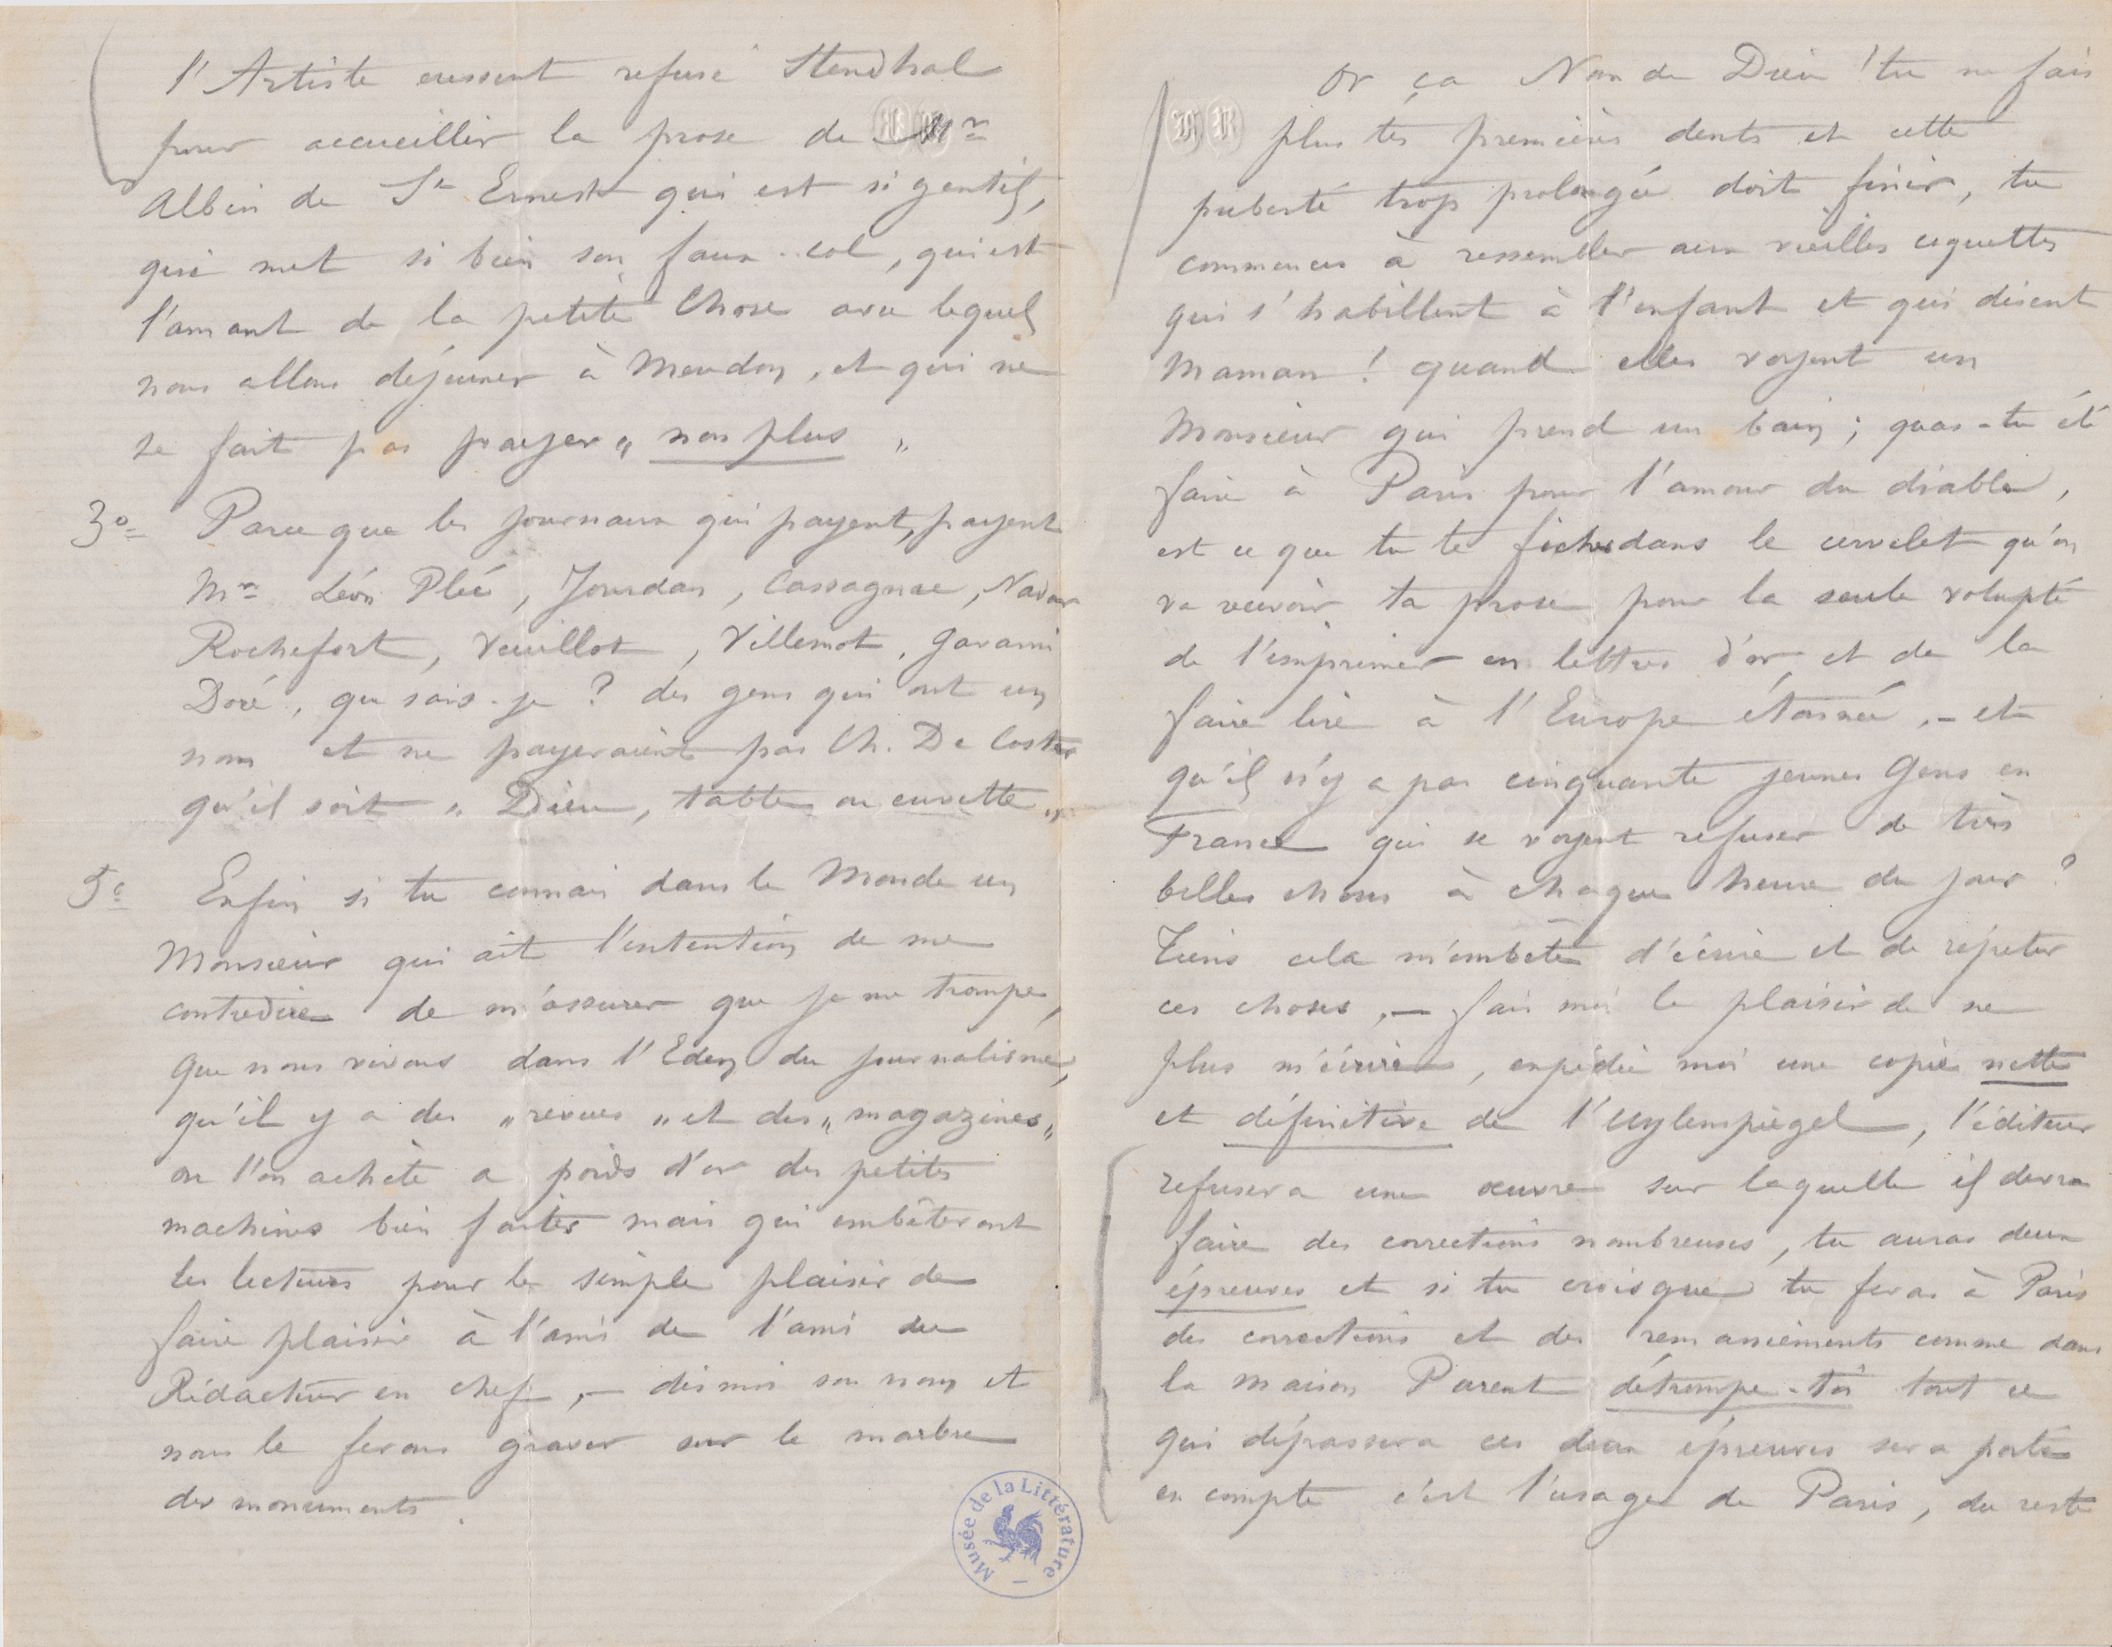 l'Artiste eussent refusé Stendhal
pour accueillir la prose de Mr
Albin de St Ernest qui est si gentil,
qui met si bien son faux-col, qui est
l'amant de la petite Chose avec lequel
nous allons déjeuner à Meudon, et qui ne
se fait pas payer „ non plus „
3° Parce que les journaux qui payent, payent
Mrs Léon Plée, Jourdan, Cassagnac, Nadar
Rochefort, Veuillot, Villemot, Gavarni
Doré, que sais-je ? des gens qui ont un
nom et ne payeraient pas Ch. De Coster
qu'il soit „ Dieu, table ou cuvette „
5° Enfin si tu connais dans le Monde un
Monsieur qui ait l'intention de me
contredire de m'assurer que je me trompe,
que nous vivons dans l'Eden du journalisme,
qu'il y a des „ revues „ et des „ magazines „
ou l'on achète a poids d'or des petites
machines bien faites mais qui embêteront
les lecteurs pour le simple plaisir de
faire plaisir à l'ami de l'ami du
Rédacteur en chef, — dis moi son nom et
nous le ferons graver sur le marbre
des monuments.
Musée de la Littérature
Or ça Nom de Dieu ! tu ne fais
plus tes premières dents et cette
puberté trop prolongée doit finir, tu
commences à ressembler aux vieilles coquettes
qui s'habillent à l'enfant et qui disent
Maman ! quand elles voyent un
Monsieur qui prend un bain ; quas-tu été
faire à Paris pour l'amour du diable,
est ce que tu te fiches dans le cervelet qu'on
va recevoir ta prose pour la seule volupté
de l'imprimer en lettres d'or et de la
faire lire à l'Europe étonnée, — et
qu'il n'y a pas cinquante jeunes Gens en
France qui se voyent refuser de très
belles choses à chaque heure du jour ?
Tiens cela m'embête d'écrire et de répéter
ces choses, — fais moi le plaisir de ne
plus m'écrire, expédie moi une copie nette
et définitive de l'Uylenspiegel, l'éditeur
refusera une œuvre sur laquelle il devra
faire des corrections nombreuses, tu auras deux
épreuves et si tu crois que tu feras à Paris
des corrections et des remaniements comme dans
la maison Parent détrompe-toi tout ce
qui dépassera ces deux épreuves sera porté
en compte c'est l'usage de Paris, du reste